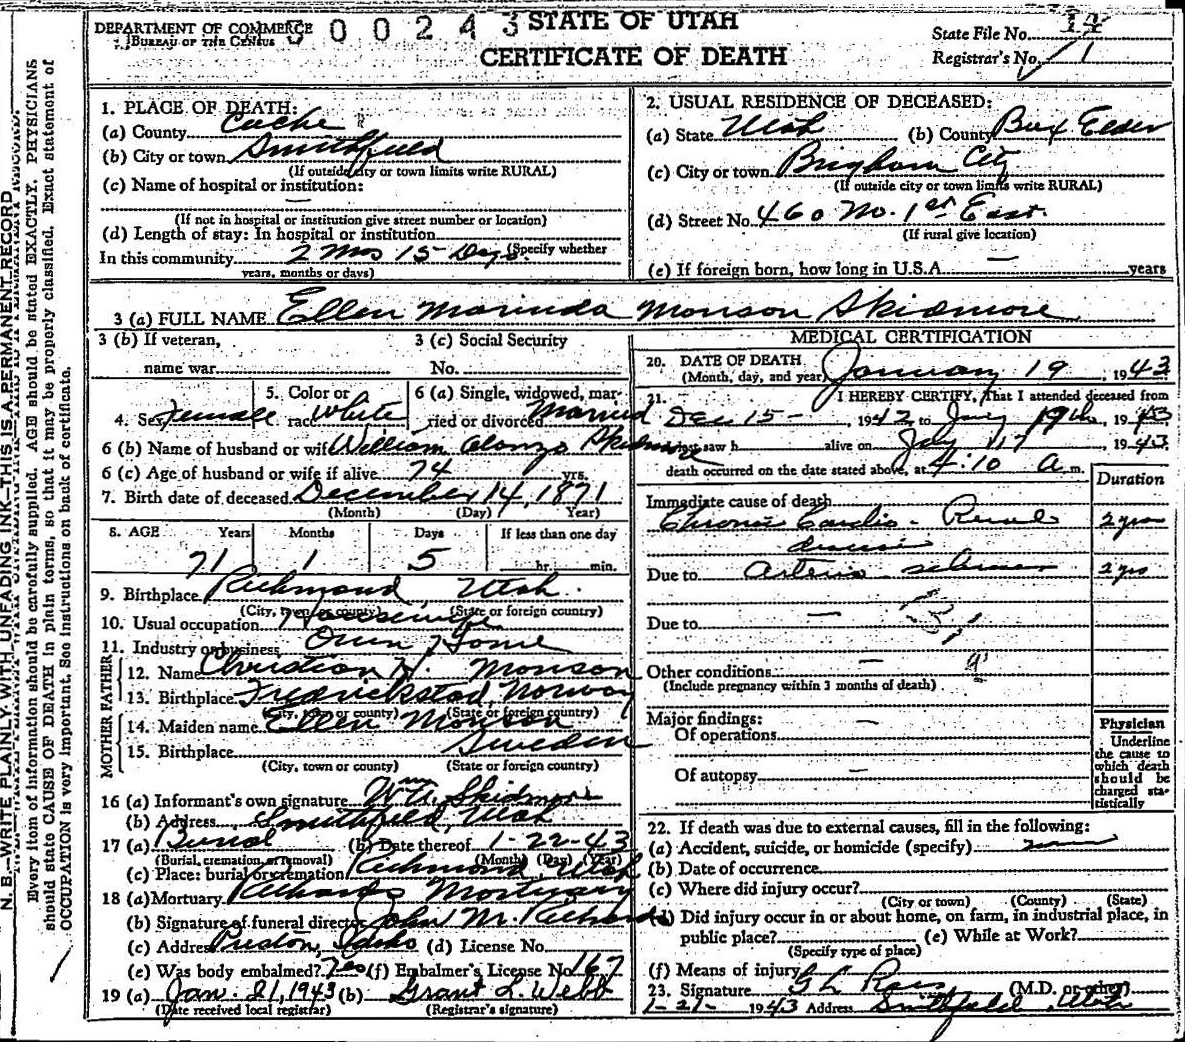 DEPARTMENT OF COMMERCE
BUREAU OF THE CENSUS
300243
STATE OF UTAH
CERTIFICATE OF DEATH
State File No. 14
Registrar's No. 1
N. B.—WRITE PLAINLY WITH UNFADING INK—THIS IS A PERMANENT RECORD
Every item of information should be carefully supplied. AGE should be stated EXACTLY. PHYSICIANS
should state CAUSE OF DEATH in plain terms, so that it may be properly classified. Exact statement of
OCCUPATION is very important. See instructions on back of certificate.
1. PLACE OF DEATH:
(a) County Cache
(b) City or town Smithfield
(If outside city or town limits write RURAL)
(c) Name of hospital or institution:
—
(If not in hospital or institution give street number or location)
(d) Length of stay: In hospital or institution
(Specify whether
In this community 2 Mos 15 Days
years, months or days)
2. USUAL RESIDENCE OF DECEASED:
(a) State Utah (b) County Box Elder
(c) City or town Brigham City
(If outside city or town limits write RURAL)
(d) Street No. 460 No. 1st East.
(If rural give location)
(e) If foreign born, how long in U.S.A. — years
3 (a) FULL NAME Ellen Marinda Monson Skidmore
3 (b) If veteran,
name war
3 (c) Social Security
No.
4. Sex Female
5. Color or
race White
6 (a) Single, widowed, mar-
ried or divorced Married
6 (b) Name of husband or wife William Alonzo Skidmore
6 (c) Age of husband or wife if alive 74 yrs.
7. Birth date of deceased December 14, 1871
(Month) (Day) (Year)
8. AGE Years Months Days If less than one day
71 1 5 hr. min.
9. Birthplace Richmond, Utah.
(City, town or county) (State or foreign country)
10. Usual occupation Housewife
11. Industry or business Own Home
FATHER
12. Name Christian H. Monson
13. Birthplace Fredrickstad, Norway
(City, town or county) (State or foreign country)
MOTHER
14. Maiden name Ellen Monson
15. Birthplace Sweden
(City, town or county) (State or foreign country)
16 (a) Informant's own signature Wm A. Skidmore
(b) Address Smithfield, Utah
17 (a) Burial (b) Date thereof 1-22-43
(Burial, cremation, or removal) (Month) (Day) (Year)
(c) Place: burial or cremation Richmond, Utah
18 (a) Mortuary Richards Mortuary
(b) Signature of funeral director John M. Richards
(c) Address Preston, Idaho (d) License No.
(e) Was body embalmed? Yes (f) Embalmer's License No. 167
19 (a) Jan. 21, 1943 (b) Grant L. Webb
(Date received local registrar) (Registrar's signature)
MEDICAL CERTIFICATION
20. DATE OF DEATH
(Month, day, and year) January 19, 1943
21. I HEREBY CERTIFY, That I attended deceased from
Dec 15 - 1942 to Jany 19th, 1943
I last saw h alive on Jany 17, 1943
death occurred on the date stated above, at 4:10 A. m.
Duration
Immediate cause of death
Chronic Cardio - Renal 2 yrs
disease
Due to Arterio sclerosis 2 yrs
Due to —
131
Other conditions —
(Include pregnancy within 3 months of death)
Major findings:
Of operations —
Of autopsy —
Physician
Underline
the cause to
which death
should be
charged sta-
tistically
22. If death was due to external causes, fill in the following:
(a) Accident, suicide, or homicide (specify)
(b) Date of occurrence
(c) Where did injury occur?
(City or town) (County) (State)
(d) Did injury occur in or about home, on farm, in industrial place, in
public place? (e) While at Work?
(Specify type of place)
(f) Means of injury
23. Signature G L Rees (M.D. or other)
1-21- 1943 Address Smithfield Utah